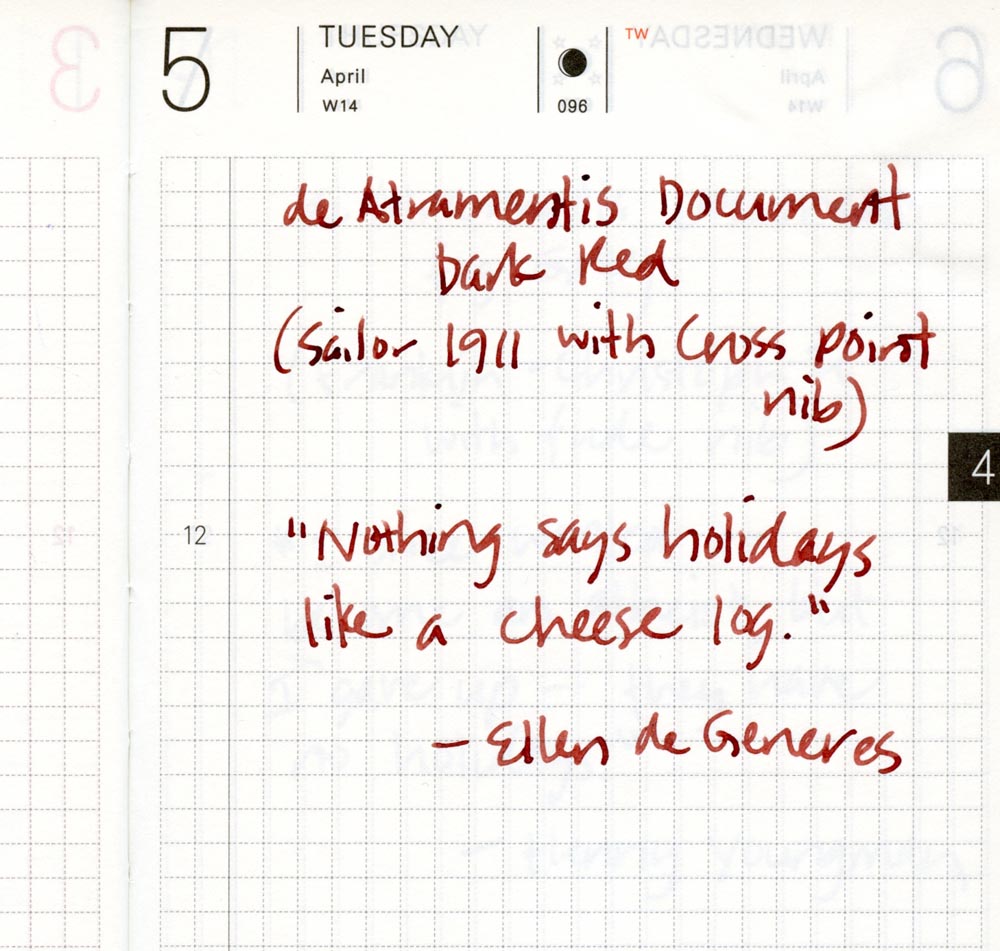 5
TUESDAY
April
W14
096
TW
de Atramentis Document
Dark Red
(Sailor 1911 with Cross Point
nib)
4
12
"Nothing says holidays
like a cheese log."
— Ellen de Generes